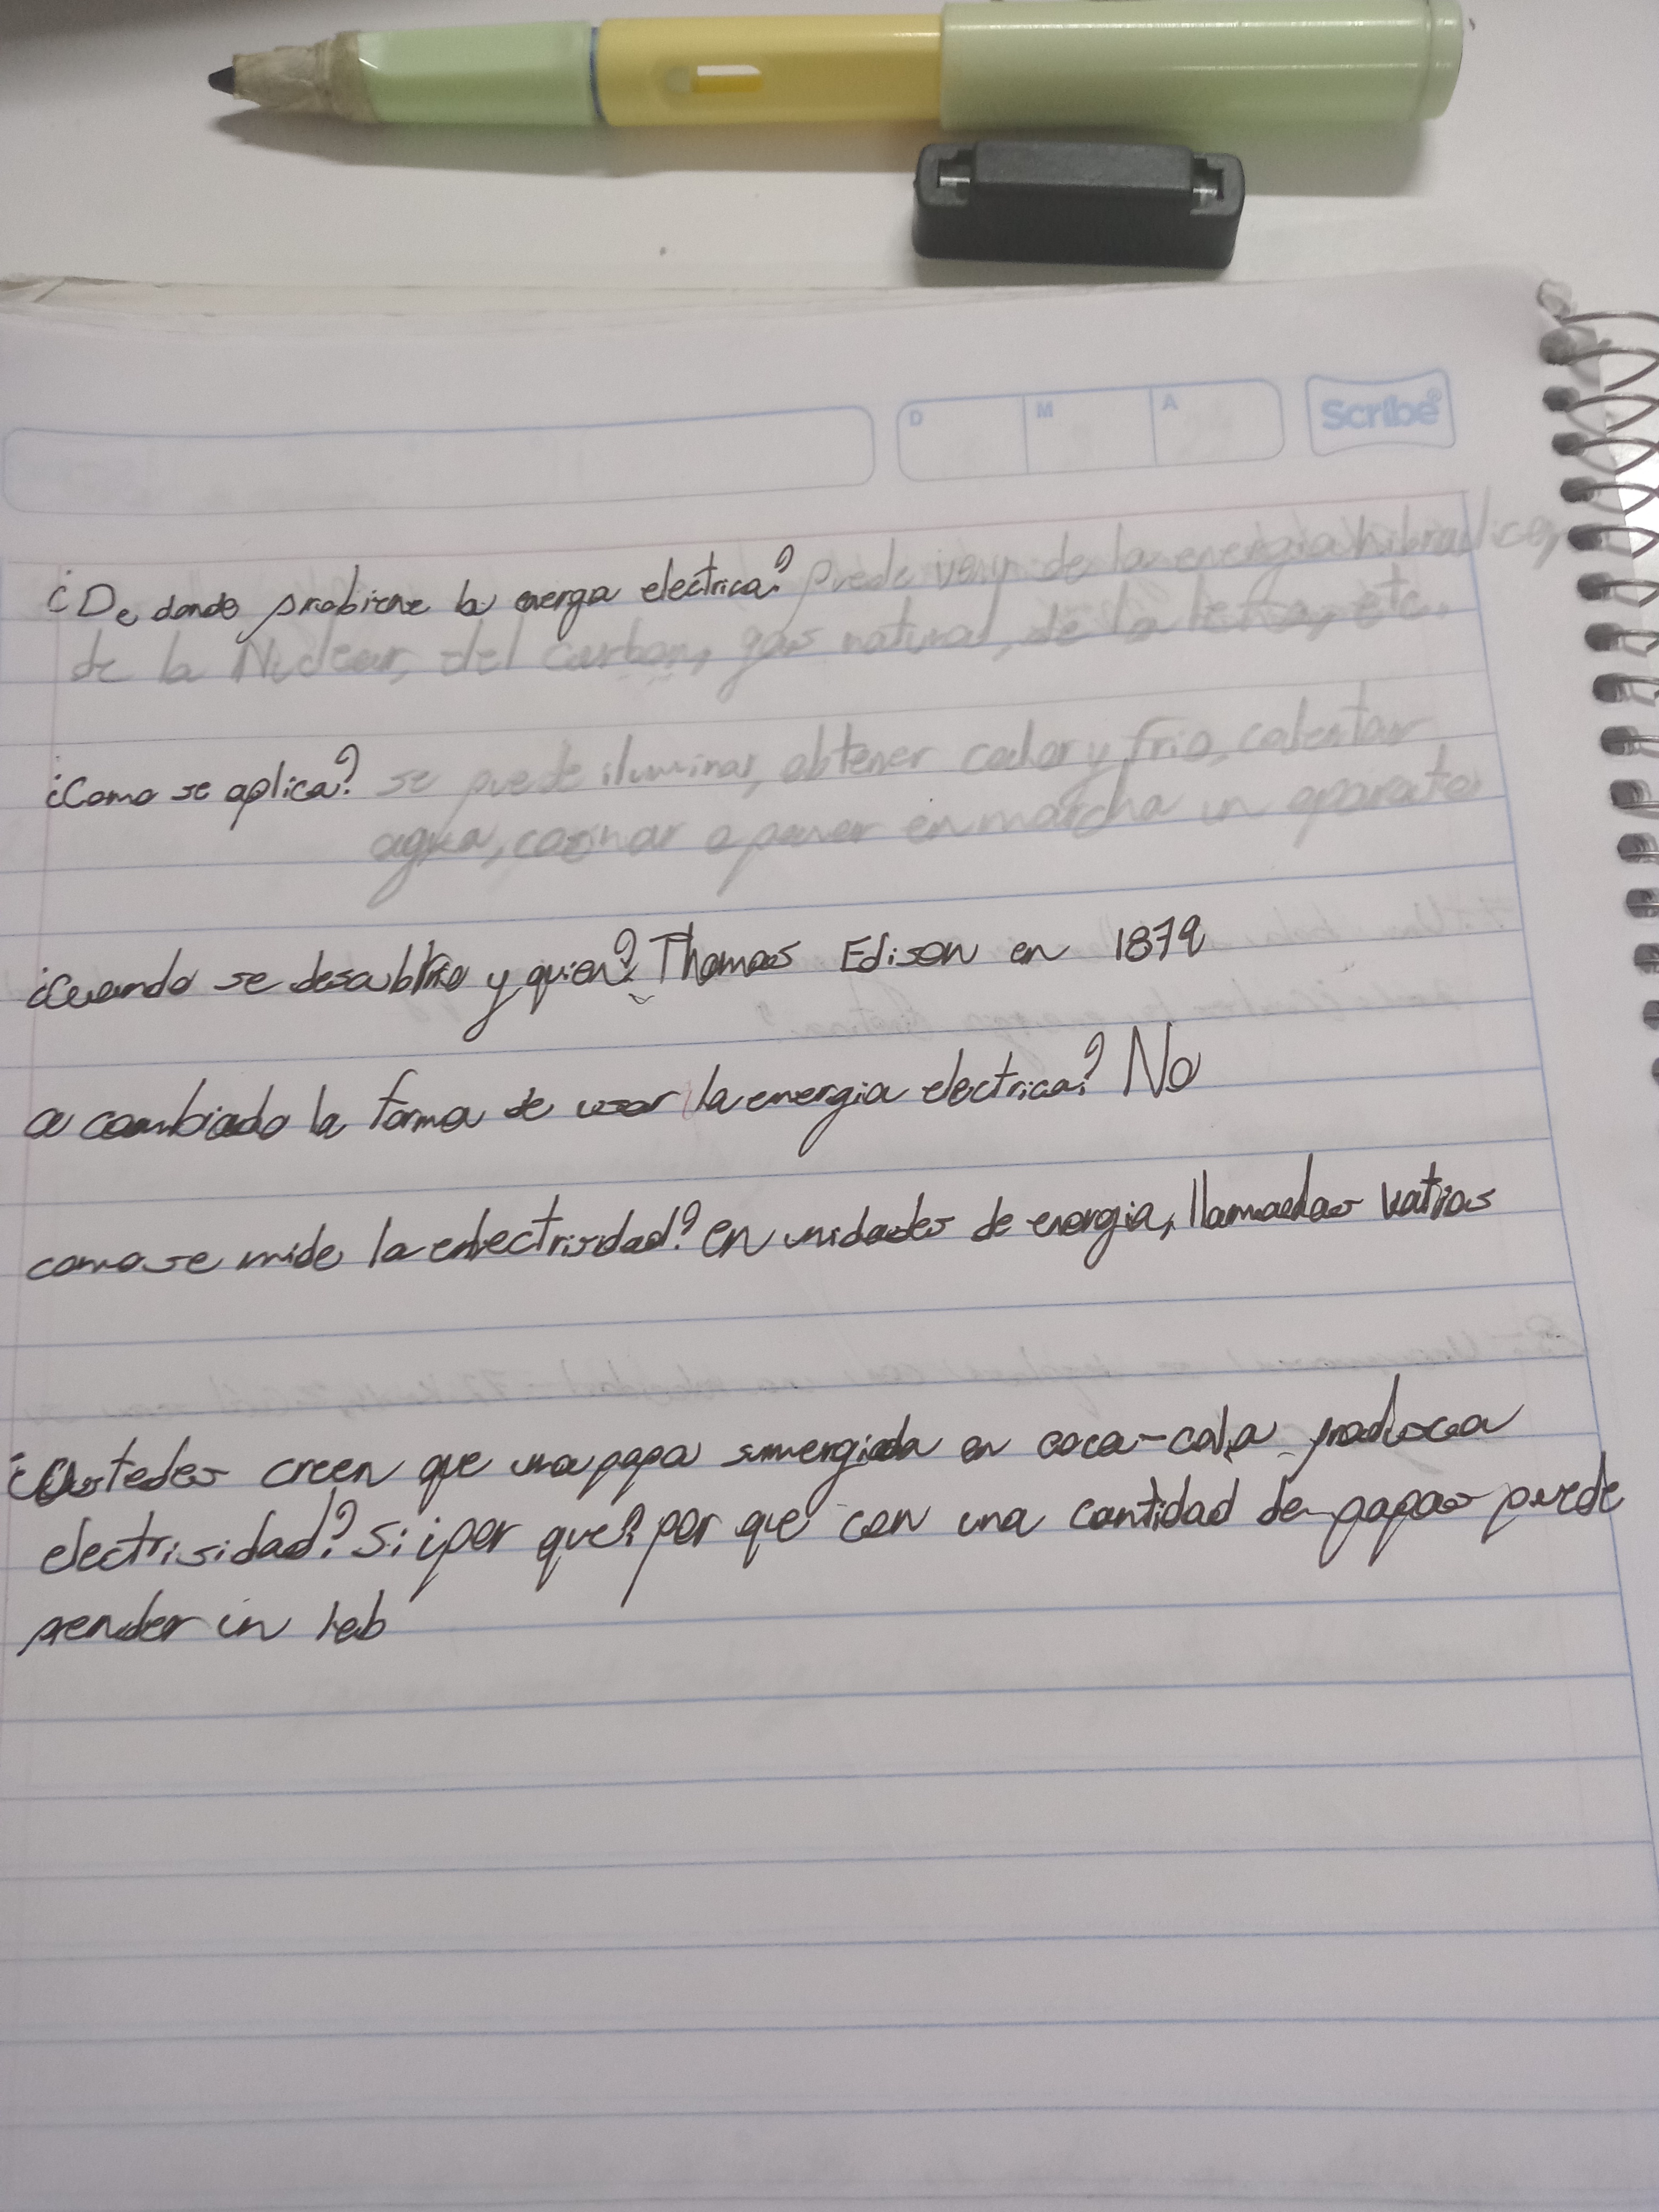 D M A Scribe
¿De donde probiene la energa electrica? puede venir de la energia hibraulica,
de la Nuclear, del carbon, gas natural, de la leña, etc.
¿Como se aplica? se puede iluminar, obtener calor y frio, calentar
agua, cocinar o poner en marcha un aparato
¿Cuando se descubrio y quien? Thomas Edison en 1879
a cambiado la forma de usar la energia electrica? No
como se mide la electrisidad? en unidades de energia, llamadas vatios
¿Ustedes creen que una papa sumergida en coca-cola produsca
electrisidad? Si ¿por que? por que con una cantidad de papas puede
prender un leb